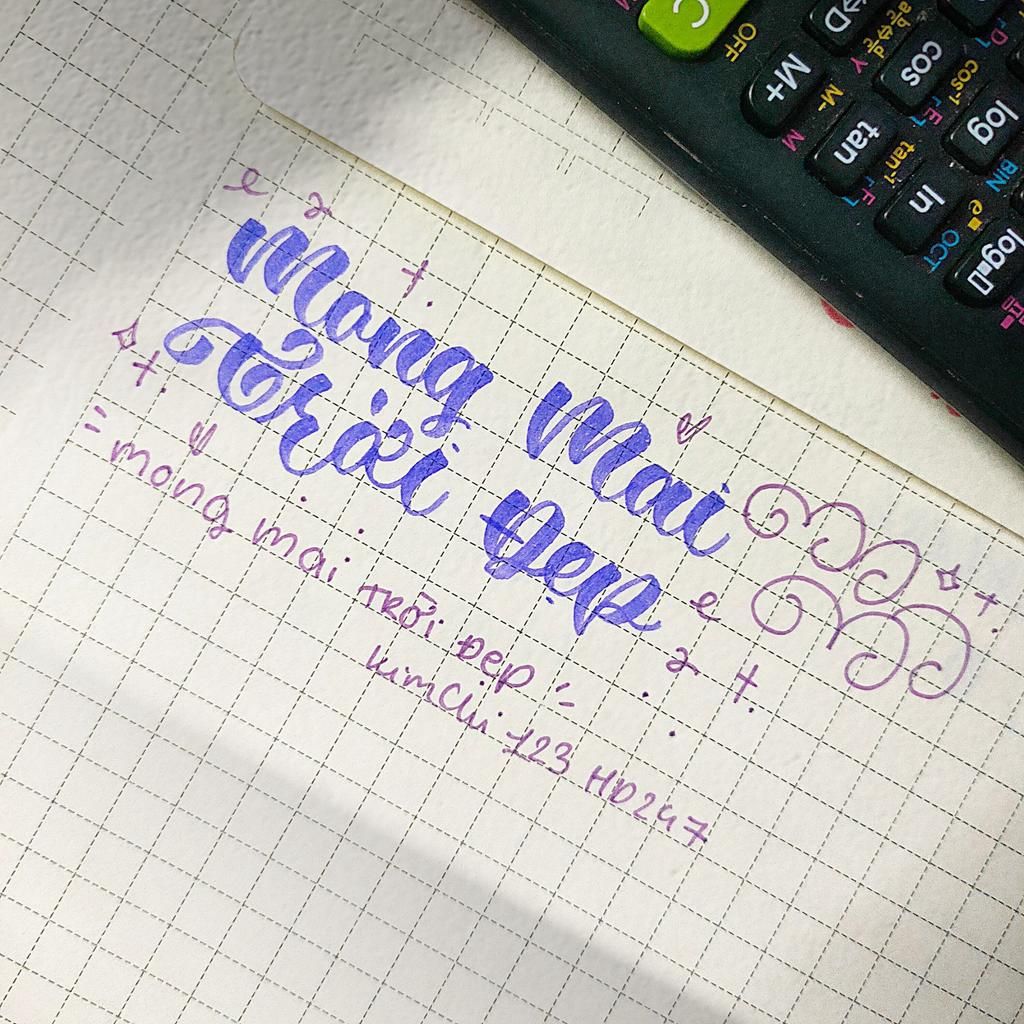 Mong Mai
Trời Đẹp
= mong mai trời đẹp =
kimchi 123 HD247
C
OFF
M+
M-
M
tan
tan⁻¹
F
cos
cos⁻¹
E
log
BIN
ln
OCT
D
Y